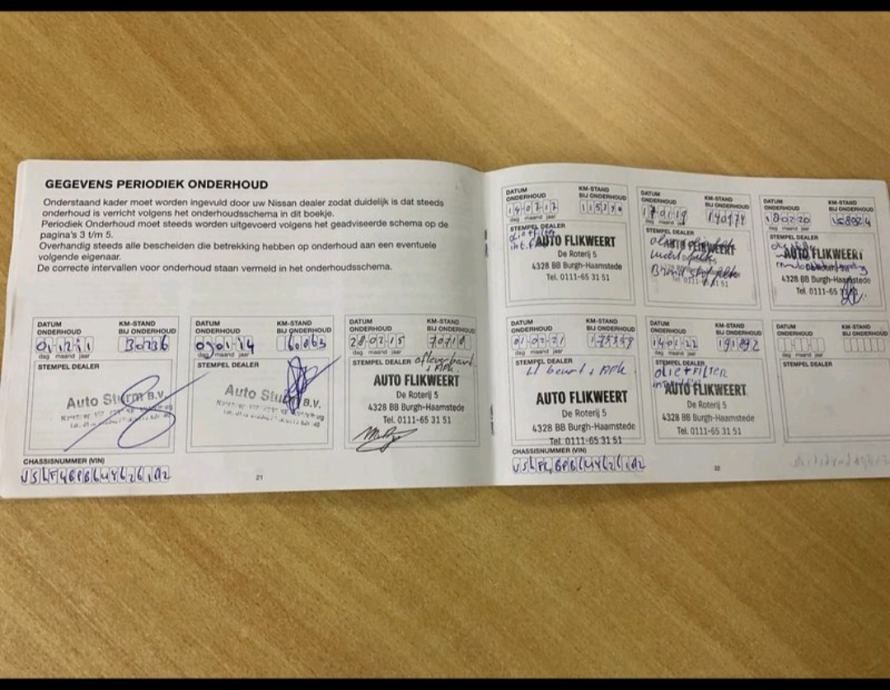 GEGEVENS PERIODIEK ONDERHOUD
Onderstaand kader moet worden ingevuld door uw Nissan dealer zodat duidelijk is dat steeds
onderhoud is verricht volgens het onderhoudsschema in dit boekje.
Periodiek Onderhoud moet steeds worden uitgevoerd volgens het geadviseerde schema op de
pagina's 3 t/m 5.
Overhandig steeds alle bescheiden die betrekking hebben op onderhoud aan een eventuele
volgende eigenaar.
De correcte intervallen voor onderhoud staan vermeld in het onderhoudsschema.
DATUM ONDERHOUD
KM-STAND BIJ ONDERHOUD
01 12 11
30236
dag maand jaar
STEMPEL DEALER
Auto Sturm B.V.
DATUM ONDERHOUD
KM-STAND BIJ ONDERHOUD
60063
dag maand jaar
STEMPEL DEALER
Auto
DATUM ONDERHOUD
KM-STAND BIJ ONDERHOUD
28 02 15
70710
dag maand jaar
STEMPEL DEALER
AUTO FLIKWEERT
De Roterij 5
4328 BB Burgh-Haamstede
Tel. 0111-65 31 51
CHASSISNUMMER (VIN)
21
DATUM ONDERHOUD
KM-STAND BIJ ONDERHOUD
dag maand jaar
STEMPEL DEALER
AUTO FLIKWEERT
De Roterij 5
4328 BB Burgh-Haamstede
Tel. 0111-65 31 51
DATUM ONDERHOUD
KM-STAND BIJ ONDERHOUD
17 01 19
dag maand jaar
STEMPEL DEALER
AUTO FLIKWEERT
4328 BB Burgh-Haamstede
Tel. 0111-65 31 51
DATUM ONDERHOUD
KM-STAND BIJ ONDERHOUD
18 02 20
dag maand jaar
STEMPEL DEALER
AUTO FLIKWEERT
4328 BB Burgh-Haamstede
Tel. 0111-65
DATUM ONDERHOUD
KM-STAND BIJ ONDERHOUD
01 02 21
dag maand jaar
STEMPEL DEALER
beurt + APK
AUTO FLIKWEERT
De Roterij 5
4328 BB Burgh-Haamstede
Tel. 0111-65 31 51
DATUM ONDERHOUD
KM-STAND BIJ ONDERHOUD
14 01 22
191892
dag maand jaar
STEMPEL DEALER
OLIE + FILTER
AUTO FLIKWEERT
De Roterij 5
4328 BB Burgh-Haamstede
Tel. 0111-65 31 51
DATUM ONDERHOUD
KM-STAND BIJ ONDERHOUD
dag maand jaar
STEMPEL DEALER
CHASSISNUMMER (VIN)
22